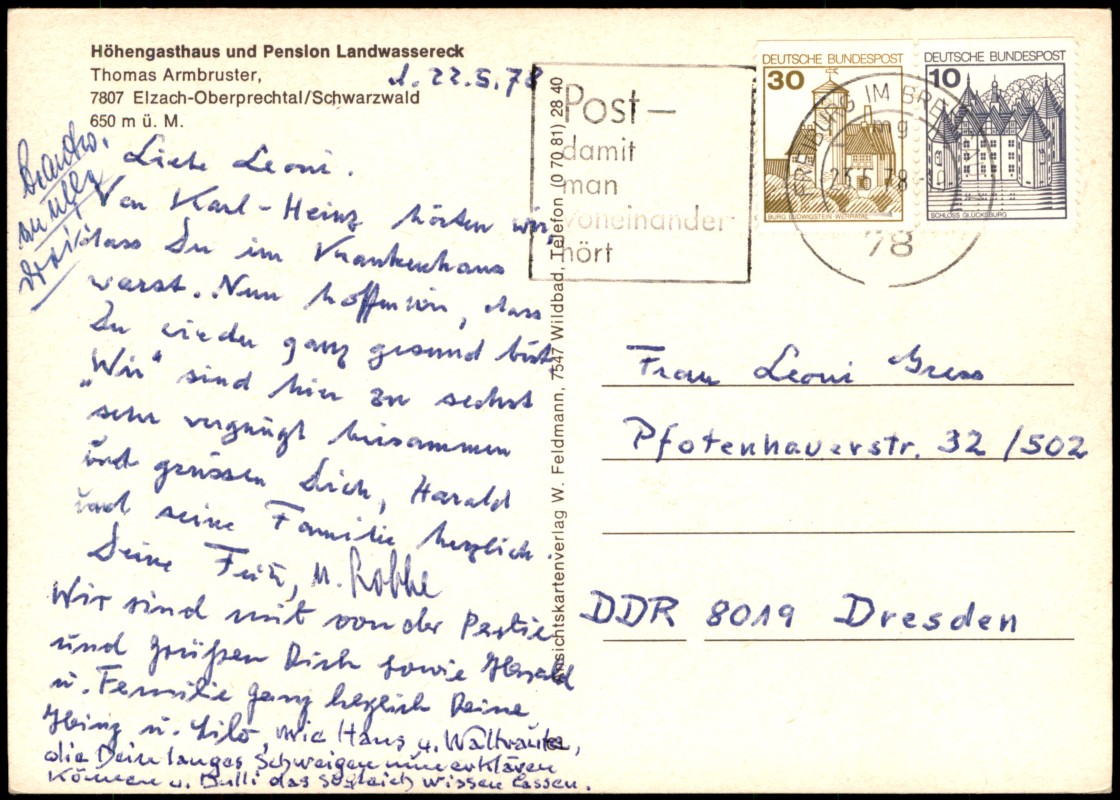 Höhengasthaus und Pension Landwassereck
Thomas Armbruster,
7807 Elzach-Oberprechtal/Schwarzwald
650 m ü. M.
d. 22.5.78
Liebe Leoni.
Von Karl-Heinz hörten wir,
dass Du im Krankenhaus
warst. Nun hoffen wir, dass
Du wieder ganz gesund bist.
„Wir“ sind hier zu sechst
sehr vergnügt beisammen
und grüssen Dich, Harald
und seine Familie herzlich.
Deine Fritz, M. Robbe
Wir sind mit von der Partie
und grüßen Dich sowie Harald
u. Familie ganz herzlich Deine
Heinz u. Lilo, wie Hans u. Waltraute,
die Dein langes Schweigen nun erklären
können u. Bulli das sogleich wissen lassen.
Ansichtskartenverlag W. Feldmann, 7547 Wildbad, Telefon (0 70 81) 28 40
Post-
damit
man
voneinander
hört
DEUTSCHE BUNDESPOST
30
BURG LUDWIGSTEIN WERRATAL
DEUTSCHE BUNDESPOST
10
SCHLOSS GLÜCKSBURG
FREIBURG IM BREI
mg
78
Frau Leoni Gress
Pfotenhauerstr. 32 /502
DDR 8019 Dresden